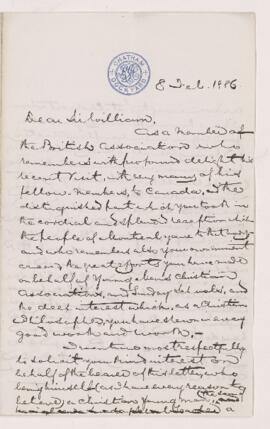 CHATHAM DOCKYARD
8 Feb. 1886
Dear Sir William,
As a Member of
the British Association who
remembers with profound delight his
recent Visit, with very many of his
fellow-Members, to Canada, and the
distinguished part which you took in
the cordial and splendid reception which
the people of Montreal gave to that body
and who remembers also your own eminent
career, & the great efforts you have made
on behalf of Young Men's Christian
Associations, and Sunday Schools, and
the deep interest which, as a Christian
Philosopher, you have shown in every
good work and word,
I venture most respectfully
to solicit your kind interest on
behalf of the bearer of this letter, who
being himself (as I have every reason to
believe) a Christian Young Man,
a